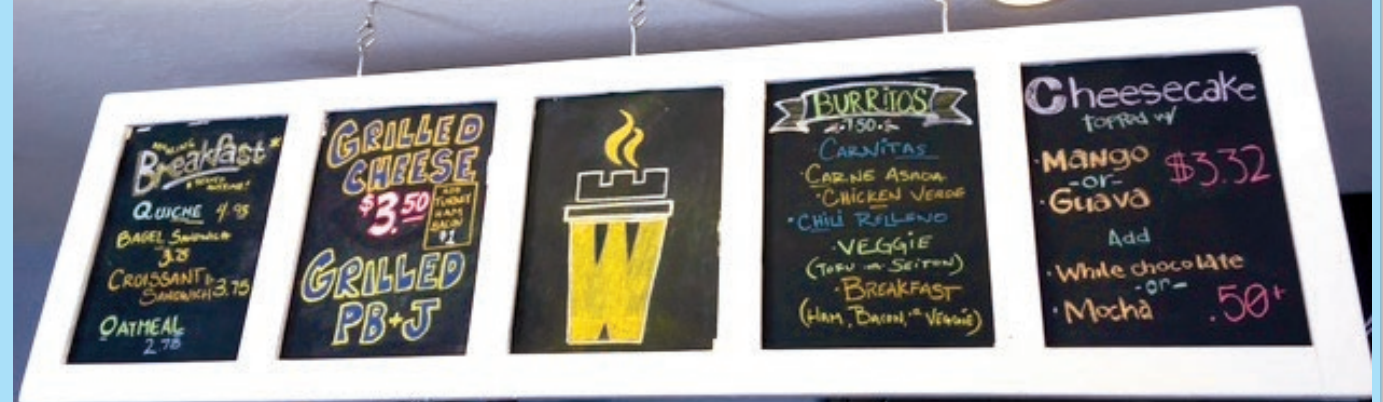 Breakfast*
QUICHE 4.95
BAGEL SANDWICH
CROISSANT
SANDWICH 3.75
OATMEAL
2.78
GRILLED
CHEESE
$3.50
ADD
TURKEY
HAM
BACON
$1
GRILLED
PB+J
W
BURRITOS
7.50
CARNITAS
·CARNE ASADA
·CHICKEN VERDE
·CHILI RELLENO
·VEGGIE
(TOFU or SEITEN)
·BREAKFAST
(HAM, BACON, or VEGGIE)
Cheesecake
TOPPED w/
·Mango
-or-
·Guava
$3.32
Add
·White chocolate
-or-
·Mocha
.50+